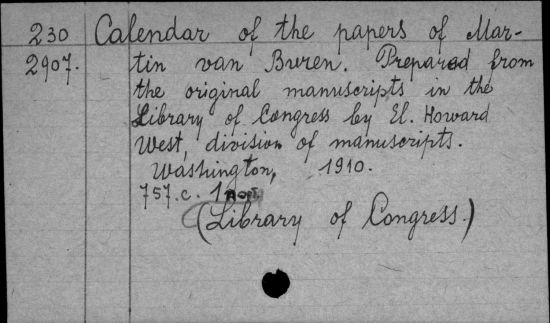 230 Calendar of the papers of Mar-
2907. tin van Buren. Prepared from
the original manuscripts in the
Library of Congress by El. Howard
West, division of manuscripts.
Washington, 1910.
757.c. 1
(Library of Congress.)